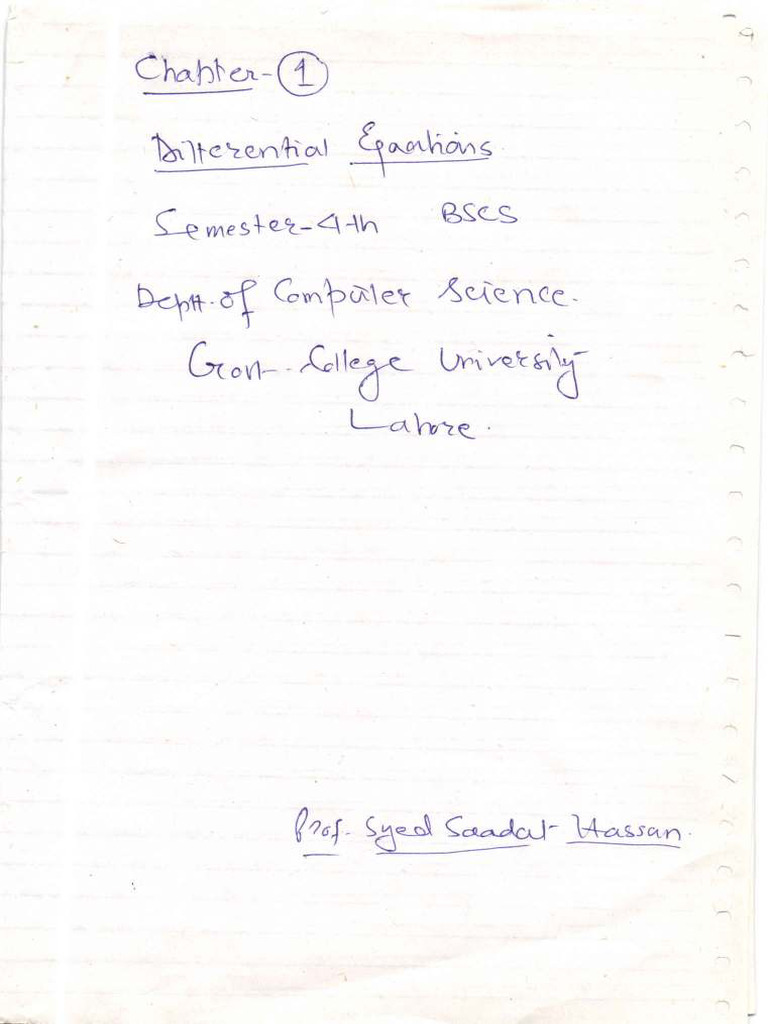 Chapter - 1
Differential Equations
Semester-4th BSCS
Deptt. of Computer Science.
Govt. College University
Lahore.
Prof. Syed Saadat Hassan.